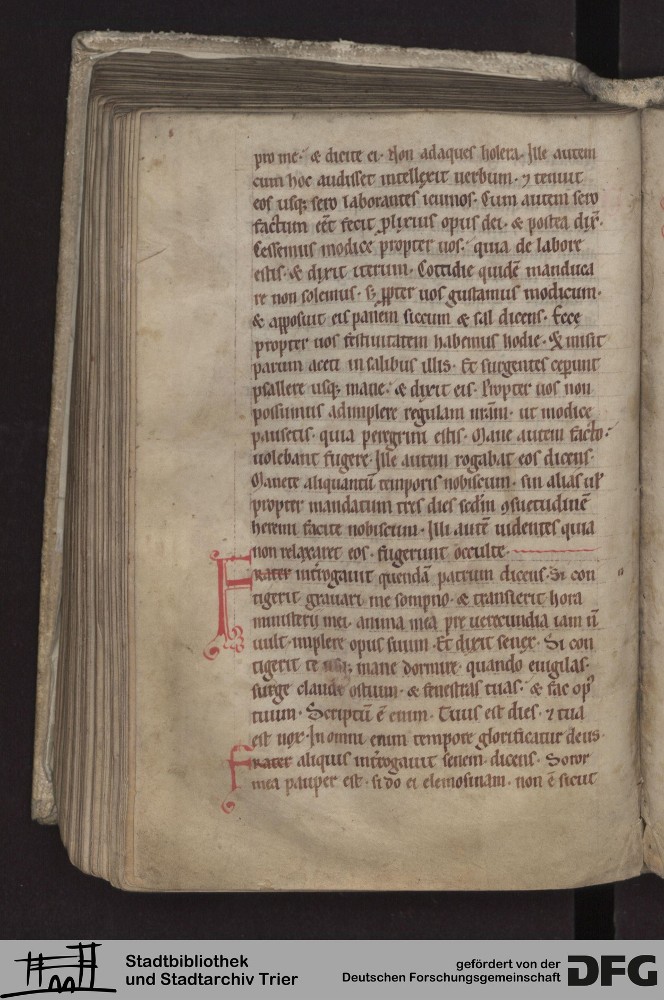 pro me. & dicite ei. Non adaques holera. Ille autem
cum hoc audisset intellexit uerbum. ⁊ tenuit
eos usq; sero laborantes ieiunos. Cum autem sero
factum eēt fecit plixius opus dei. & postea dix̄.
Cessemus modice propter uos. quia de labore
estis. & dixit iterum. Cottidie quidē manduca
re non solemus. s; ꝓpter uos gustamus modicum.
& apposuit eis panem siccum & sal dicens. Ecce
propter uos festiuitatem habemus hodie. & misit
parum aceti in salibus illis. Et surgentes ceperunt
psallere usq; mane. & dixit eis. Propter uos non
possumus adimplere regulam nrām. ut modice
pausetis. quia peregrini estis. Mane autem facto.
uolebant fugere. Ille autem rogabat eos dicens.
Manete aliquantū temporis nobiscum. sin alias uƚ
propter mandatum tres dies sedm̄ ꝯsuetudinē
heremi facite nobiscum. Illi autē uidentes quia
non relaxaret eos. fugerunt occulte.
Frater int̄rogauit quendā patrum dicens. Si con
tigerit grauari me sompno. & transierit hora
ministerij mei. anima mea pre uerecundia iam n̄
uult implere opus suum. Et dixit senex. Si con
tigerit te usq; mane dormire. quando euigilas.
surge claude ostium. & fenestras tuas. & fac op᷒
tuum. Scriptū ē enim. Tuus est dies. ⁊ tua
est nox. In omni enim tempore glorificatur deus.
Frater aliquis int̄rogauit senem. dicens. Soror
mea pauper est. si do ei elemosinam. non ē sicut
Stadtbibliothek
und Stadtarchiv Trier
gefördert von der
Deutschen Forschungsgemeinschaft
DFG